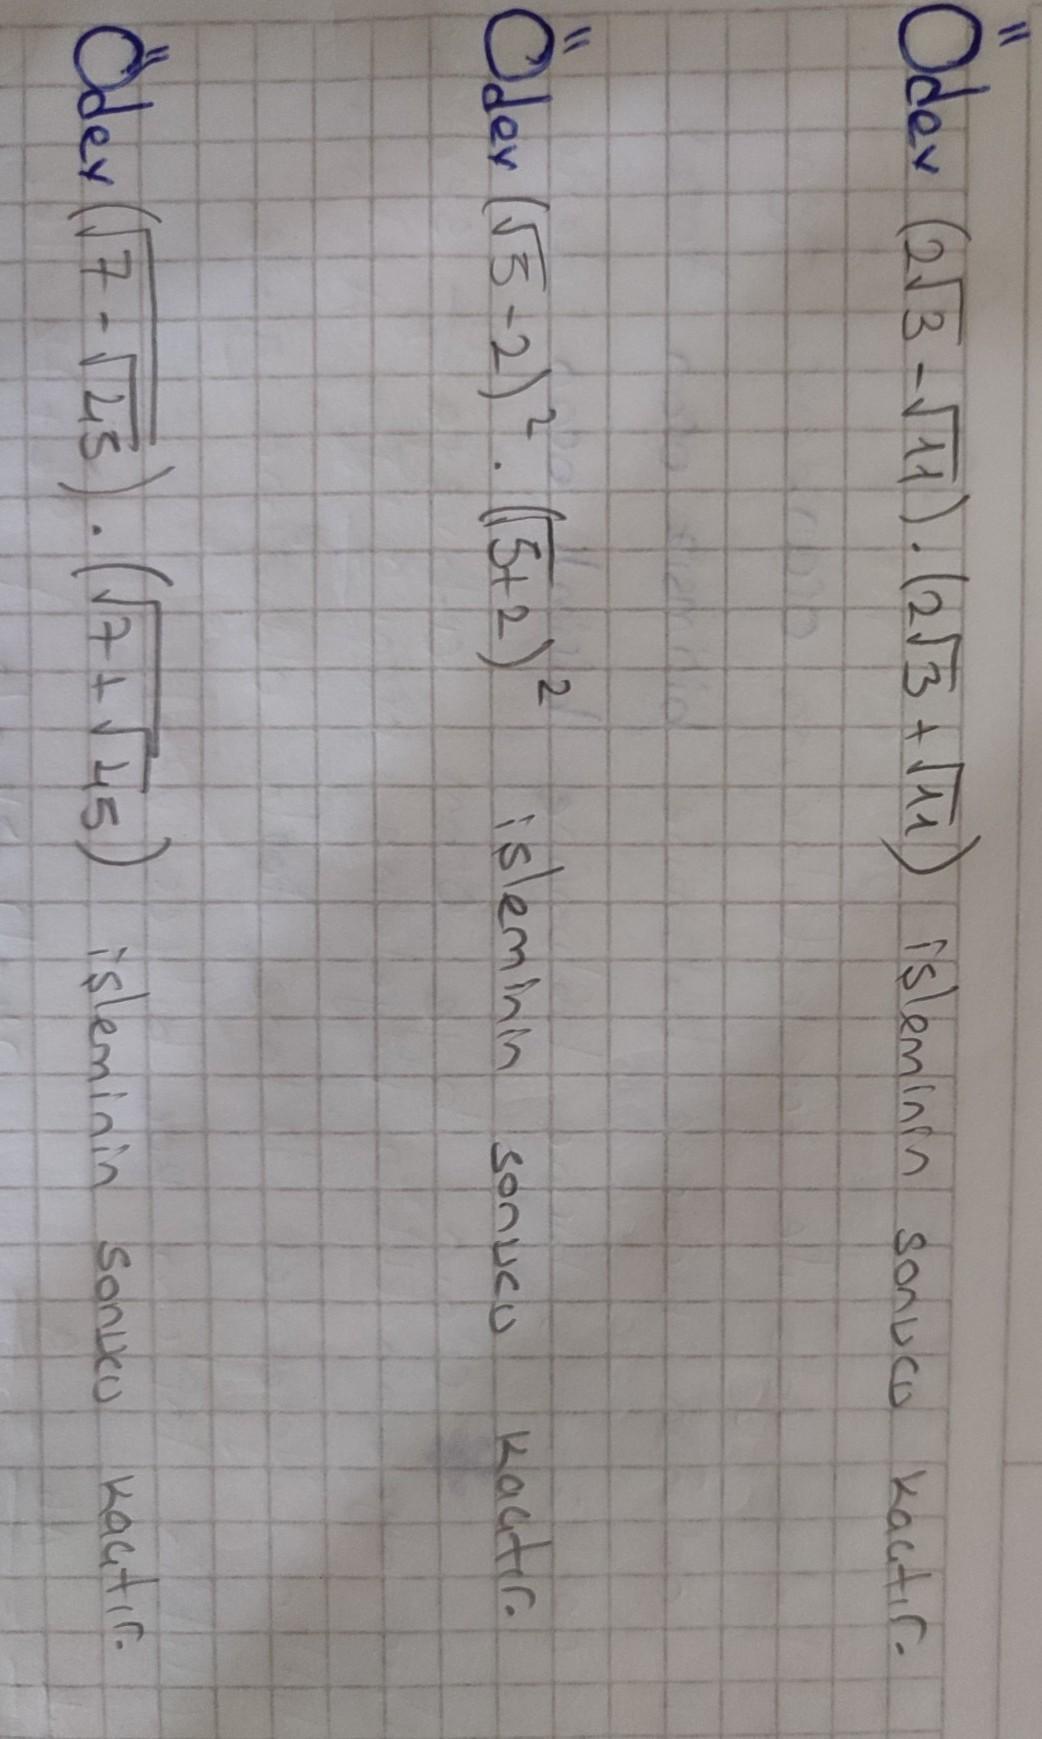 Ödev (2√3 - √11) . (2√3 + √11) işleminin sonucu kaçtır.
Ödev (√5 - 2)² . (√5 + 2)² işleminin sonucu kaçtır.
Ödev (√(7 - √45)) . (√(7 + √45)) işleminin sonucu kaçtır.